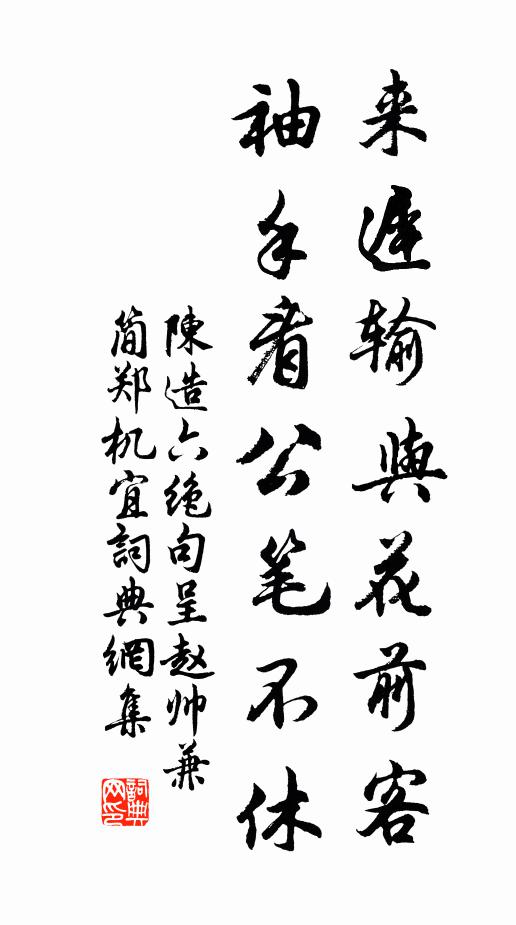 来遲输與花前客
袖手看公笔不休
陳造六绝句呈赵帅兼
简郑机宜詞典網集
詞典网印